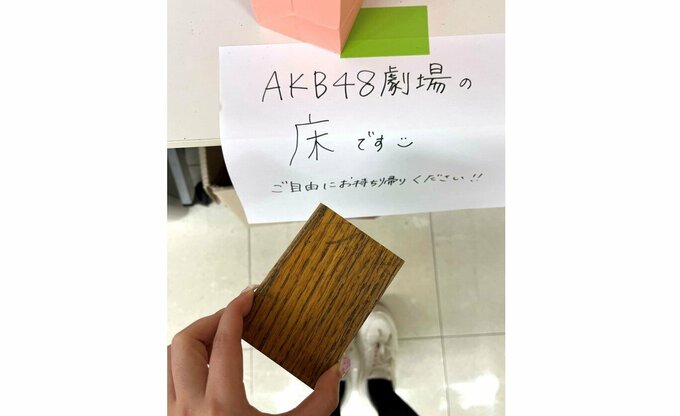 AKB48劇場の
床です
ご自由にお持ち帰りください!!